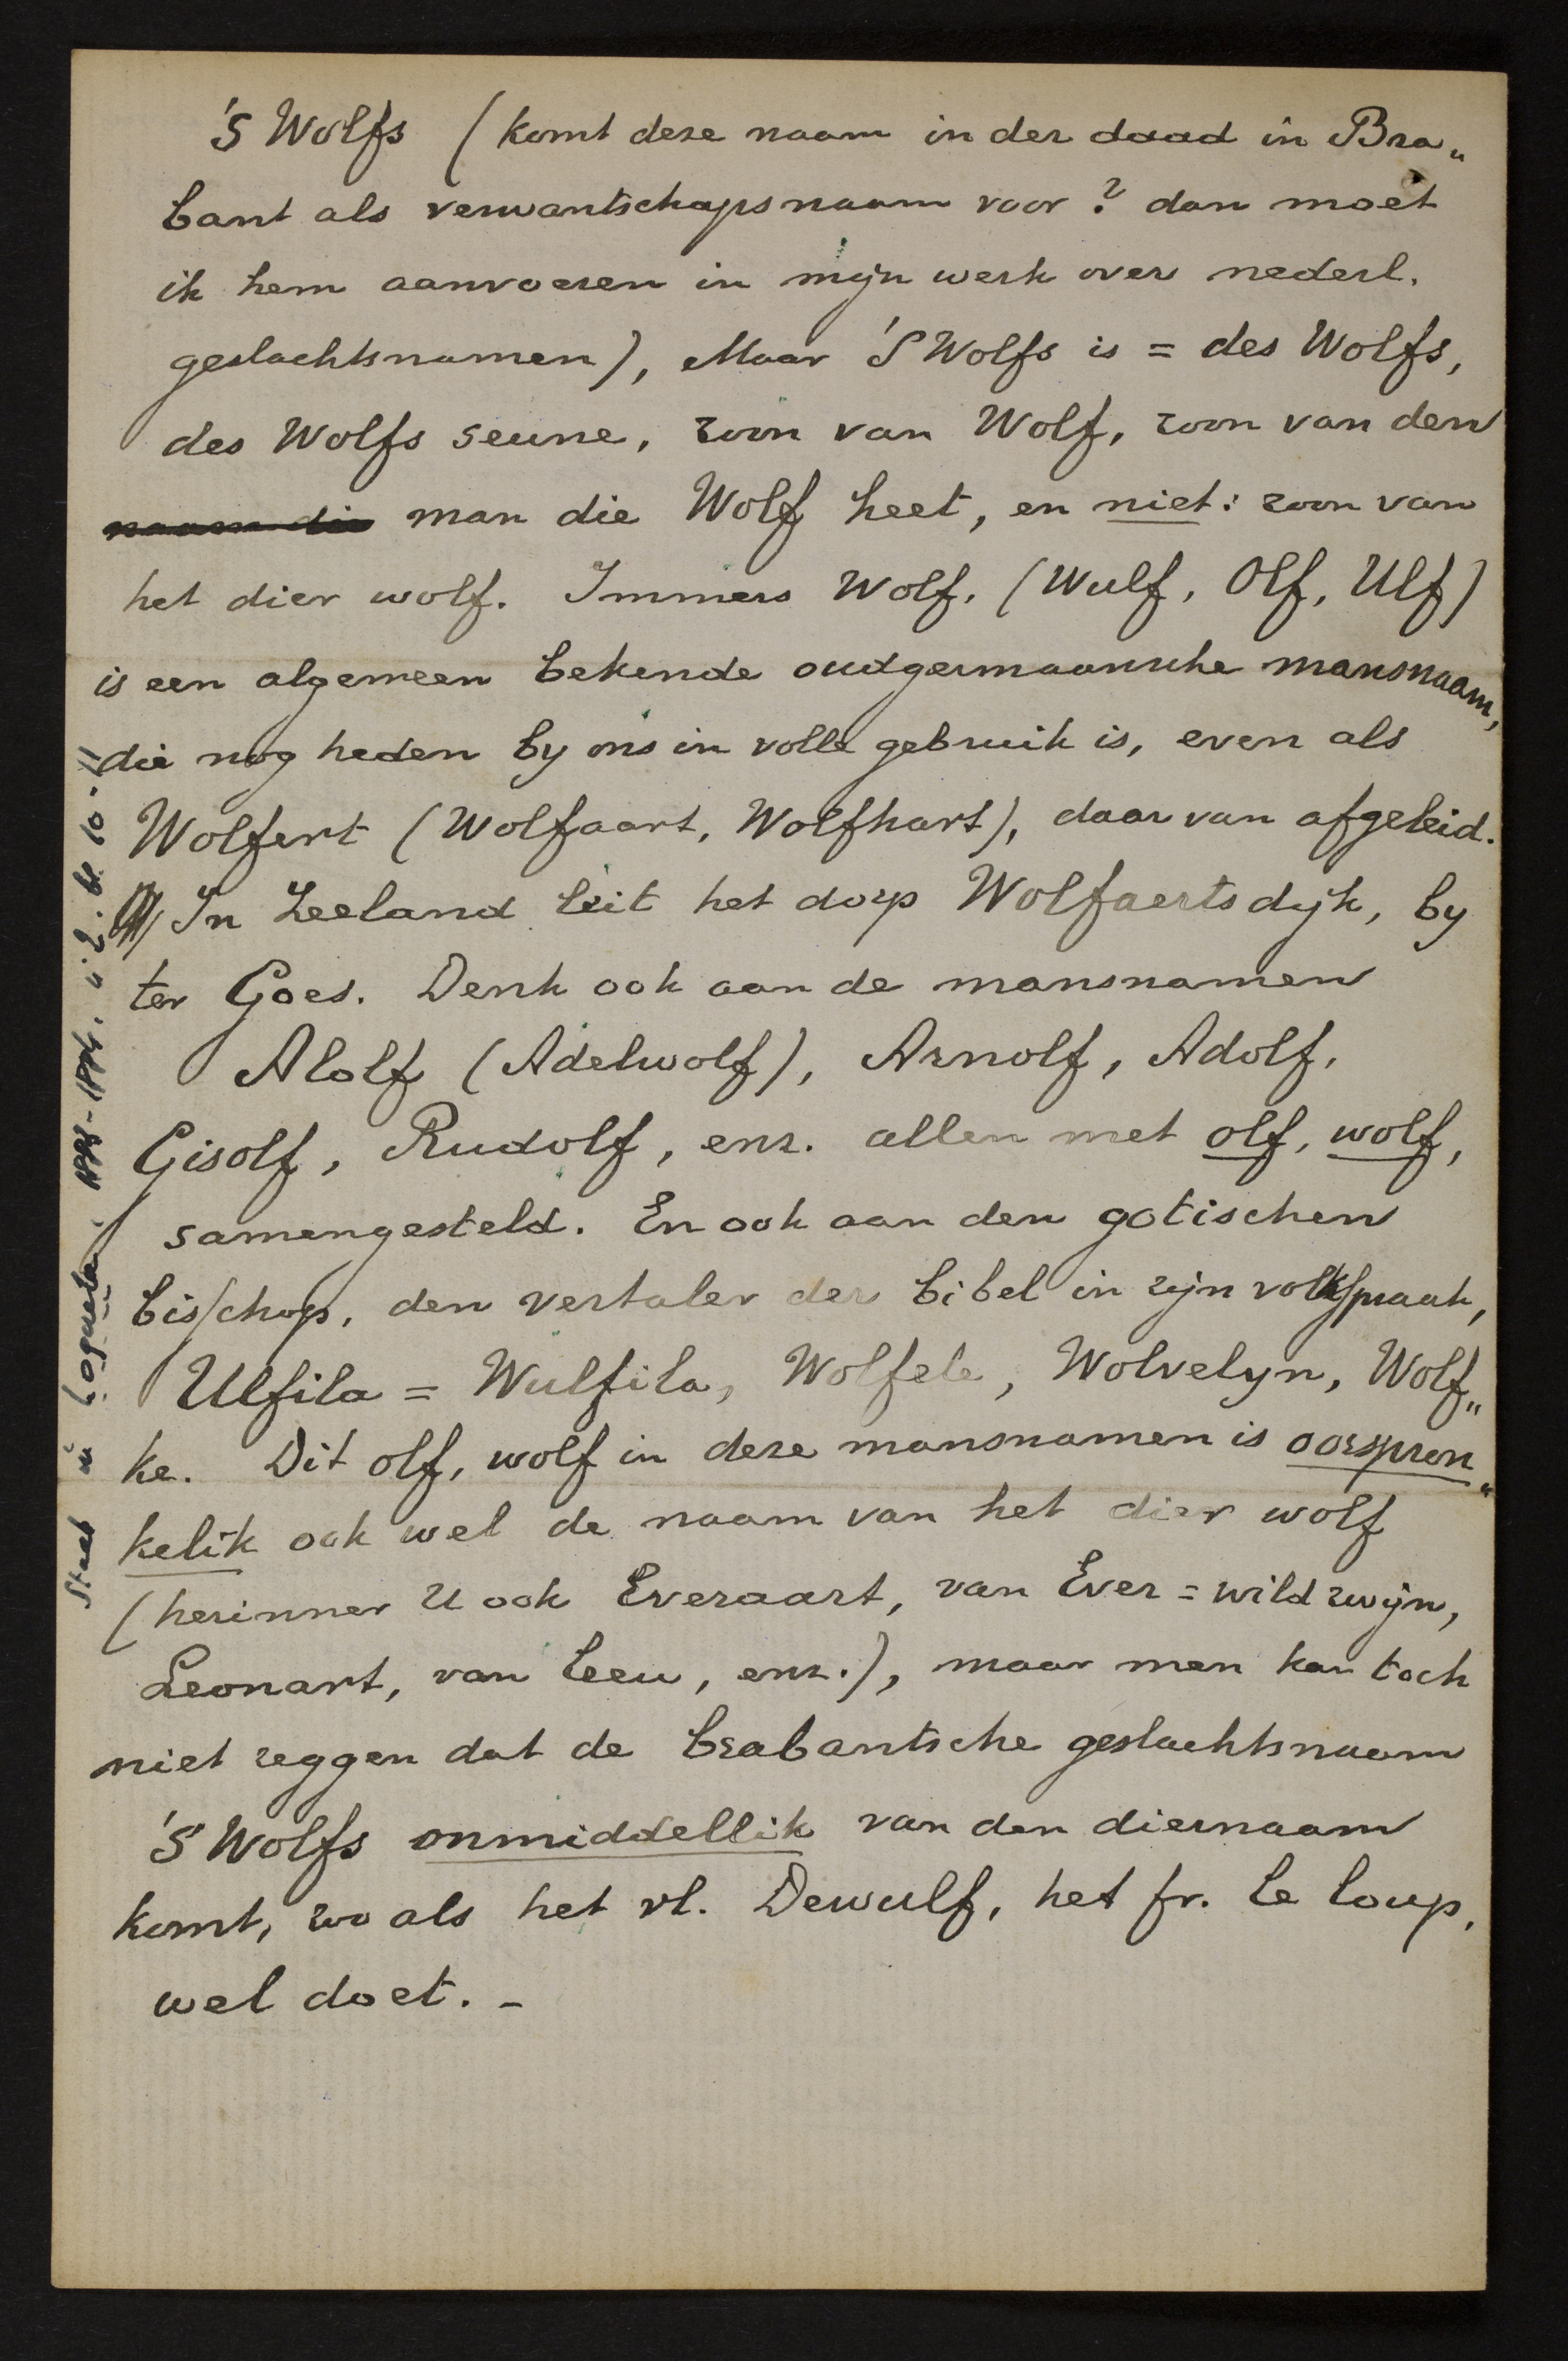 'S Wolfs (komt deze naam in der daad in Bra„
bant als verwantschapsnaam voor? dan moet
ik hem aanvoeren in mijn werk over nederl.
geslachtsnamen), Maar 'S Wolfs is = des Wolfs,
des Wolfs seune, zoon van Wolf, zoon van den
naam die man die Wolf heet, en niet: zoon van
het dier wolf. Immers Wolf, (Wulf, Olf, Ulf)
is een algemeen bekende oudgermaansche mansnaam,
die nog heden by ons in volle gebruik is, even als
Wolfert (Wolfaart, Wolfhart), daar van afgeleid.
In Zeeland leit het dorp Wolfaertsdijk, by
ter Goes. Denk ook aan de mansnamen
Alolf (Adelwolf), Arnolf, Adolf,
Gisolf, Rudolf, enz. allen met olf, wolf,
samengesteld. En ook aan den gotischen
bisschop, den vertaler der bibel in zijn volksspraak,
Ulfila = Wulfila, Wolfele, Wolvelyn, Wolf„
ke. Dit olf, wolf in deze mansnamen is oorspron„
kelik ook wel de naam van het dier wolf
(herinner U ook Everaart, van Ever = wild zwijn,
Leonart, van leeu, enz.), maar men kan toch
niet zeggen dat de brabantsche geslachtsnaam
'S Wolfs onmiddellik van den diernaam
komt, zoo als het vl. Dewulf, het fr. le loup,
wel doet. -
Staat in Loquela